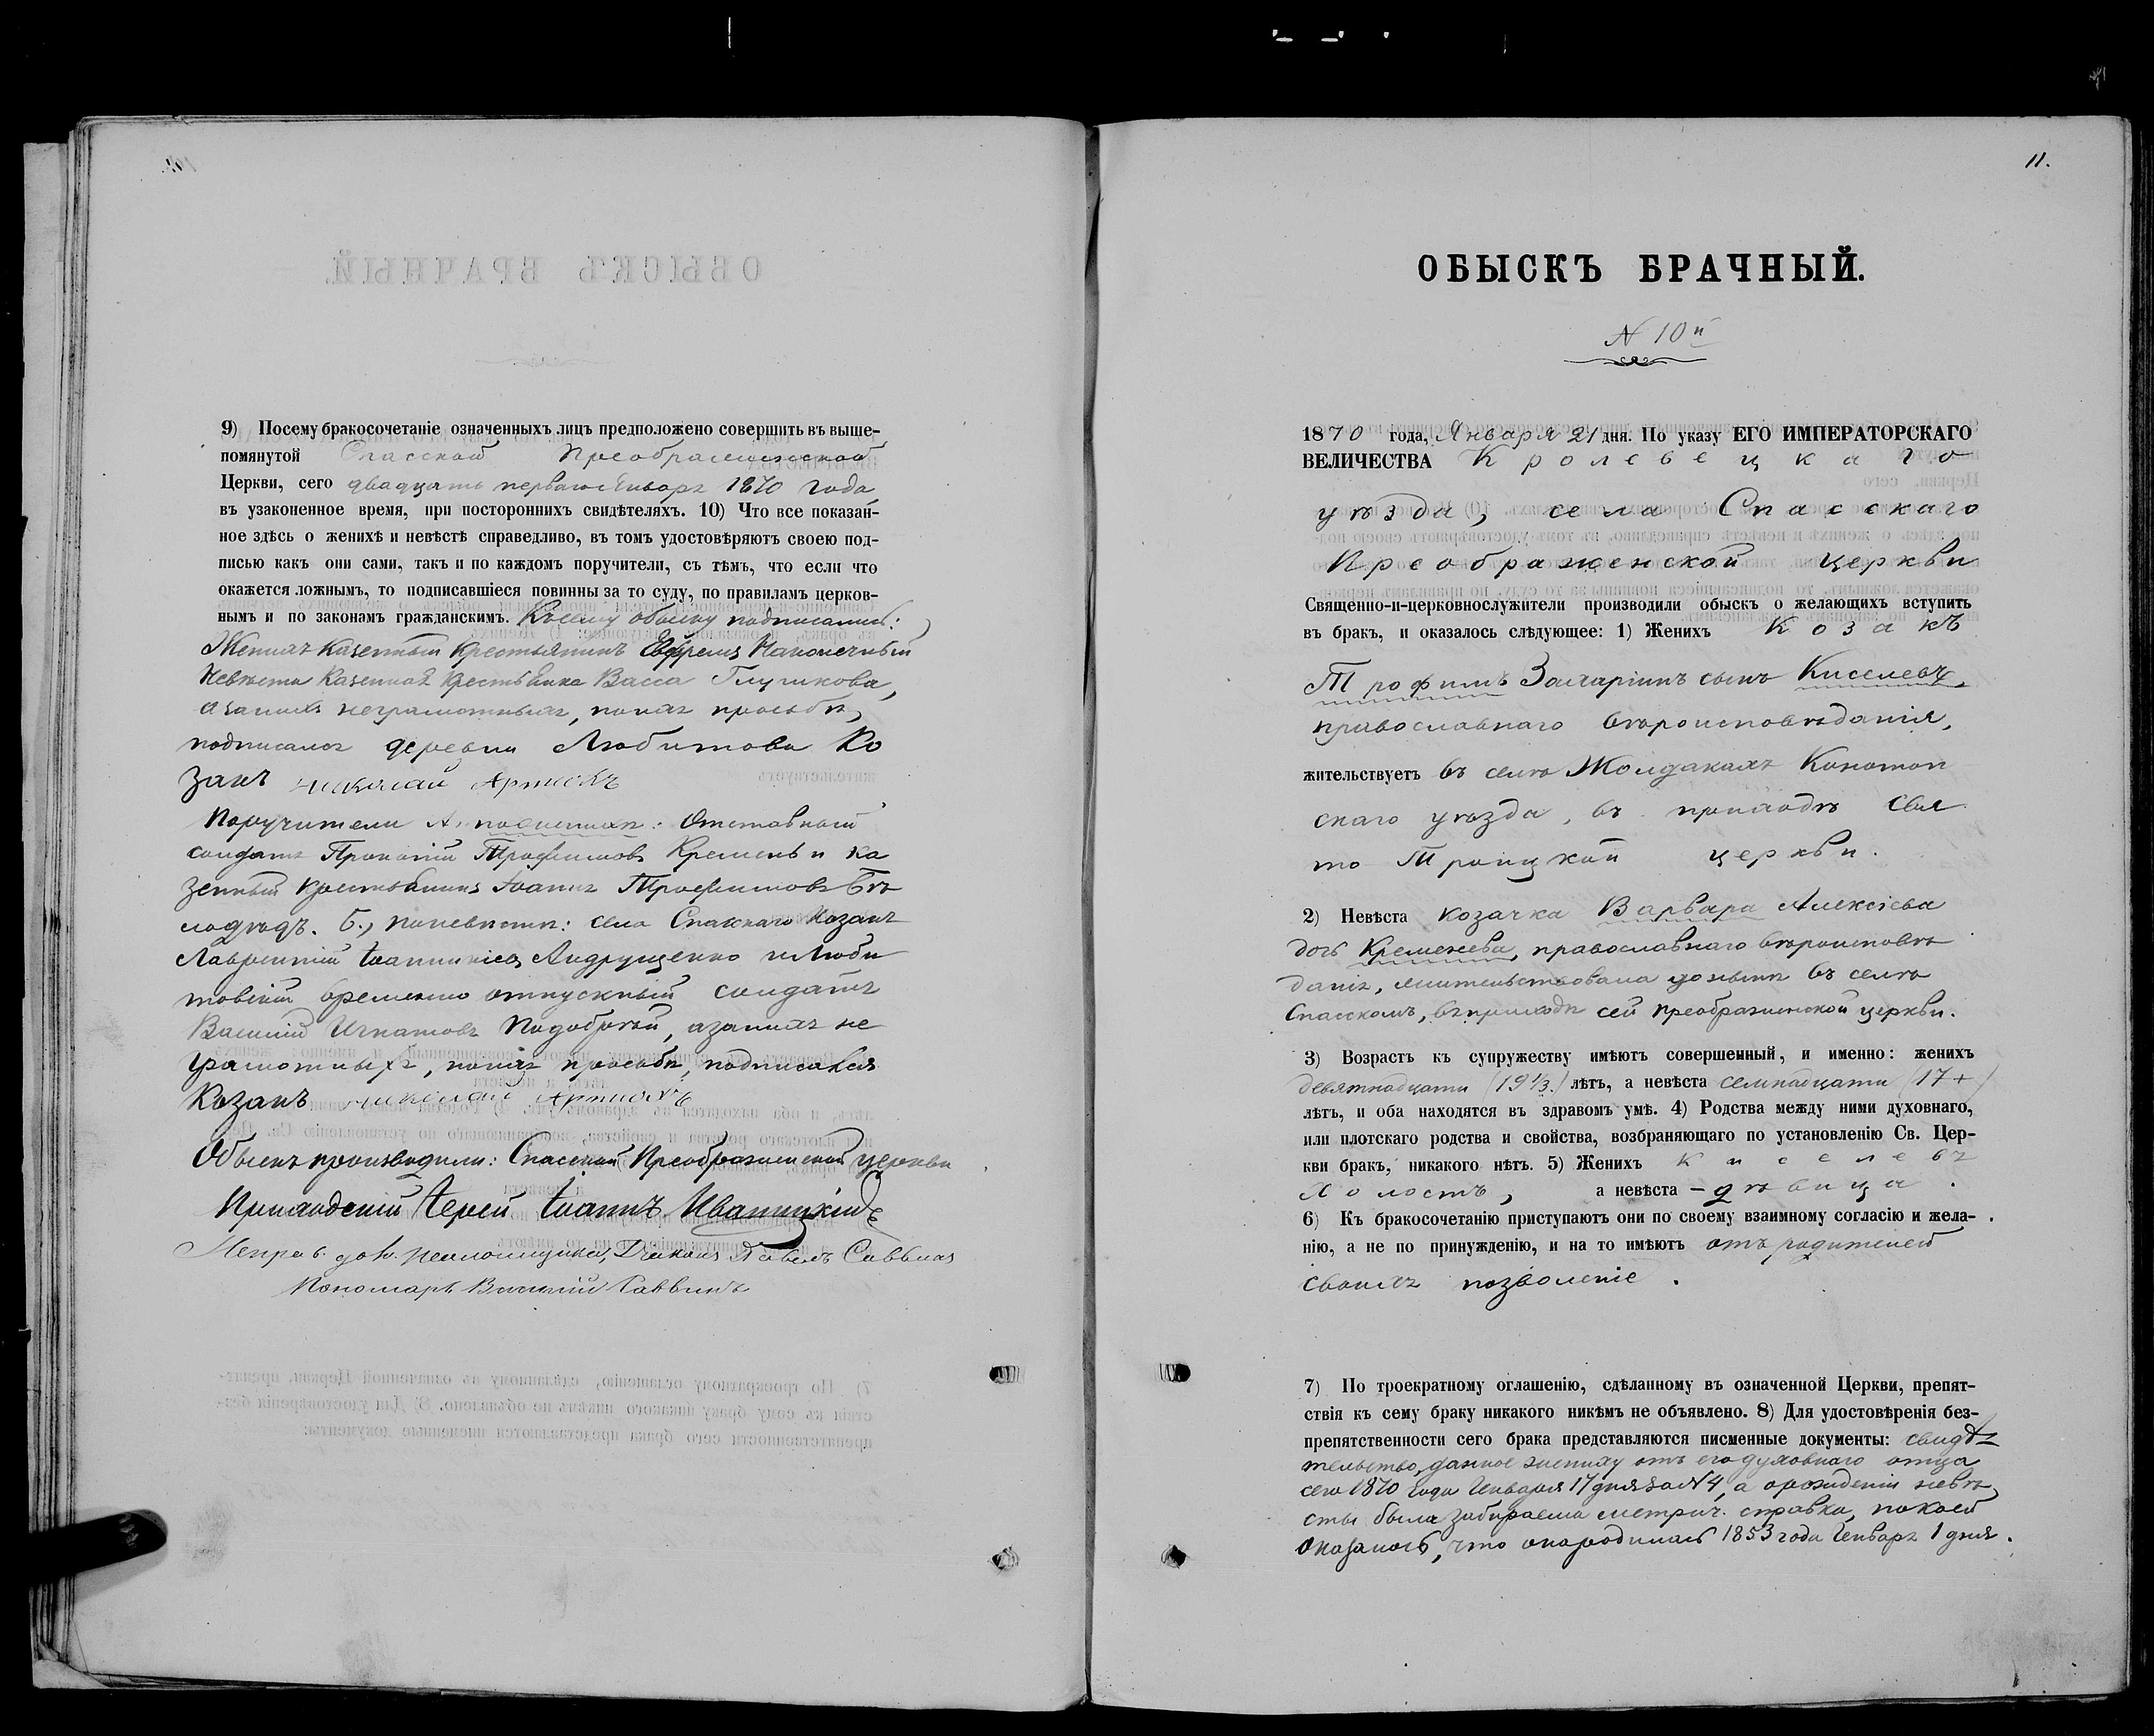 9) Посему бракосочетаніе означенныхъ лицъ предположено совершить въ выше-
помянутой Спасской Преображенской
Церкви, сего двадцать перваго Генваря 1870 года
въ узаконенное время, при постороннихъ свидѣтеляхъ. 10) Что все показан-
ное здѣсь о женихѣ и невѣстѣ справедливо, въ томъ удостовѣряютъ своею под-
писью какъ они сами, такъ и по каждомъ поручители, съ тѣмъ, что если что
окажется ложнымъ, то подписавшіеся повинны за то суду, по правиламъ церков-
нымъ и по законамъ гражданскимъ. Къ сему обыску подписались:
Женихъ казенный крестьянинъ Ефремъ Наконечный
Невѣста казенная крестьянка Васса Глушкова,
а за нихъ неграмотныхъ, по ихъ просьбѣ,
подписался деревни Любитова Ко
закъ Николай
Поручители А. по женихѣ: Отставный
солдатъ Прокопій Трофимовъ Кремень и ка
зенный крестьянинъ Іоаннъ Трофимовъ Бѣ
лодѣдъ. Б., по невѣстѣ: села Спаскаго Козакъ
Лаврентій Іоанникіевъ Андрущенко и Люби
товскій временно отпускный солдатъ
Василій Игнатовъ Подобрѣй, а за нихъ не
грамотныхъ, по ихъ просьбѣ, подписался
Козакъ Николай
Обыскъ производили: Спасской Преображенской церкви
Приходскій Іерей Іоаннъ Иваницкій
Исправ. долж. псаломщика, Діаконъ Павелъ Саввинъ
Пономарь Василій Саввинъ
11.
ОБЫСКЪ БРАЧНЫЙ.
N 10й
1870 года, Января 21 дня. По указу ЕГО ИМПЕРАТОРСКАГО
ВЕЛИЧЕСТВА Кролевецкаго
уѣзда, села Спасскаго
Преображенской церкви
Священно-и-церковнослужители производили обыскъ о желающихъ вступить
въ бракъ, и оказалось слѣдующее: 1) Женихъ Козакъ
Трофимъ Захаріинъ сынъ Киселевъ,
православнаго вѣроисповѣданія,
жительствуетъ въ селѣ Жолдакахъ Конотоп
скаго уѣзда, въ приходѣ Свя
то Троицкой церкви.
2) Невѣста козачка Варвара Алексіева
дочь Кременева, православнаго вѣроисповѣ
данія, жительствовала донынѣ въ селѣ
Спасскомъ, въ приходѣ сей преображенской церкви.
3) Возрастъ къ супружеству имѣютъ совершенный, и именно: женихъ
девятнадцати (19 1/3.) лѣтъ, а невѣста семнадцати (17 +)
лѣтъ, и оба находятся въ здравомъ умѣ. 4) Родства между ними духовнаго,
или плотскаго родства и свойства, возбраняющаго по установленію Св. Цер-
кви бракъ, никакого нѣтъ. 5) Женихъ Киселевъ
холостъ, а невѣста — дѣвица.
6) Къ бракосочетанію приступаютъ они по своему взаимному согласію и жела-
нію, а не по принужденію, и на то имѣютъ отъ родителей
своихъ позволеніе.
7) По троекратному оглашенію, сдѣланному въ означенной Церкви, препят-
ствія къ сему браку никакого никѣмъ не объявлено. 8) Для удостовѣренія без-
препятственности сего брака представляются писменные документы: свидѣ
тельство, данное жениху отъ его духовнаго отца
сего 1870 года Генваря 17 дня за N 4, а о рожденіи невѣ
сты была забираема метрич. справка, по коей
оказалось, что она родилась 1853 года Генваря 1 дня.